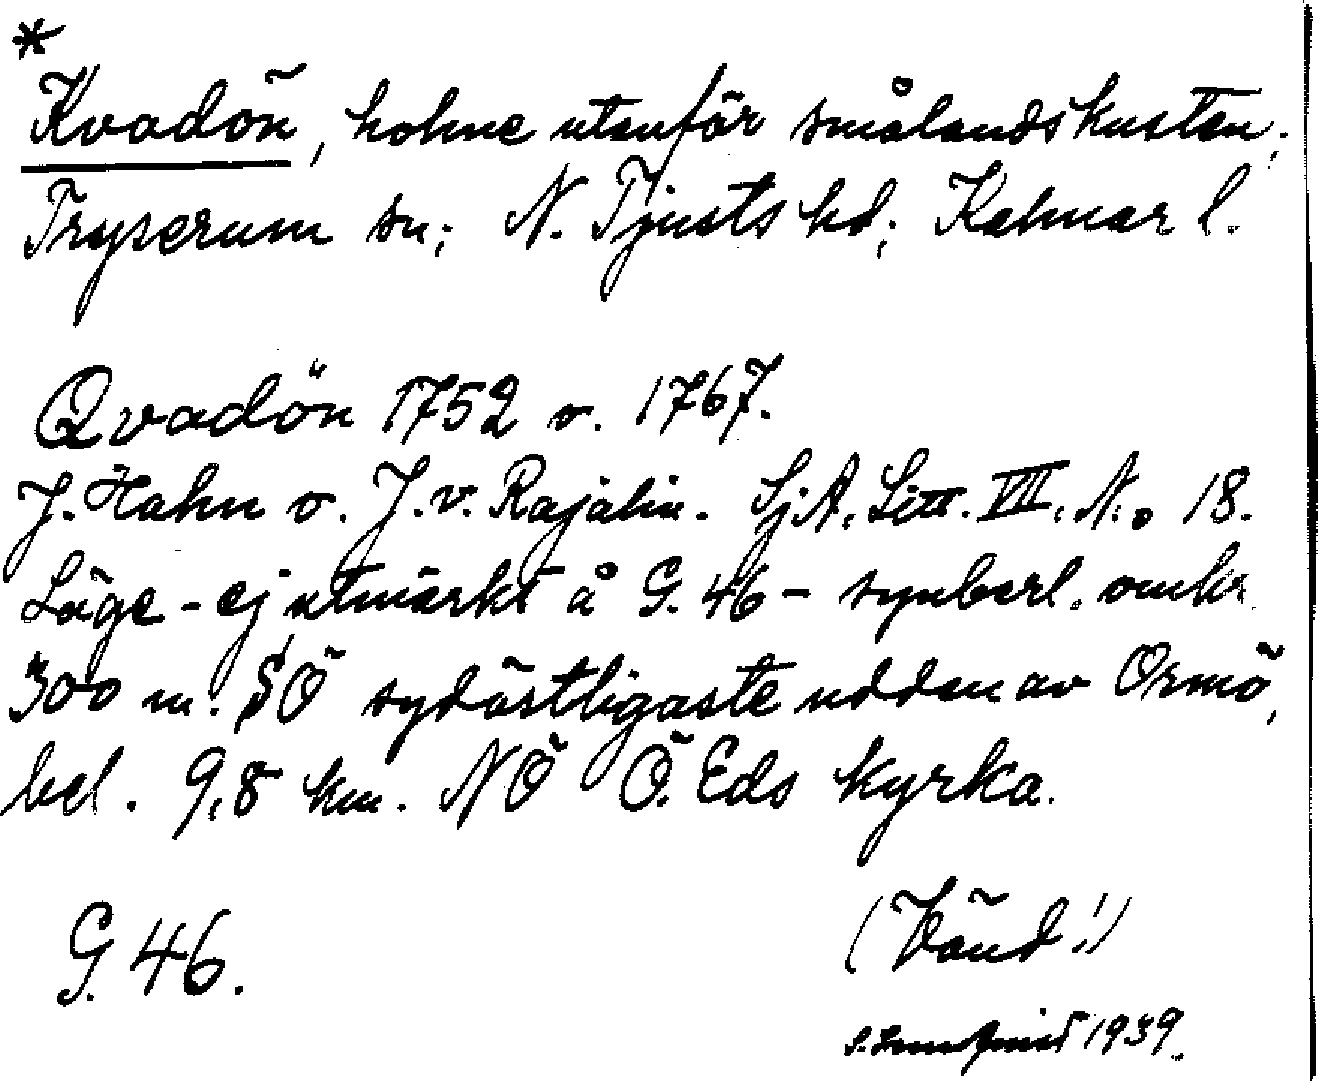 *
Kvadön, holme utanför smålandskusten;
Tryserum sn; N. Tjusts hd; Kalmar l.
Qvadön 1752 o. 1767.
J. Hahn o. J. v. Rajalin. SjA. Litt. VII. N:o 18.
Läge - ej utmärkt å G. 46 - synbarl. omkr.
300 m. SÖ sydöstligaste udden av Ormö,
bel. 9,8 km. NÖ Ö. Eds kyrka.
G. 46.
(Vänd!)
1939.